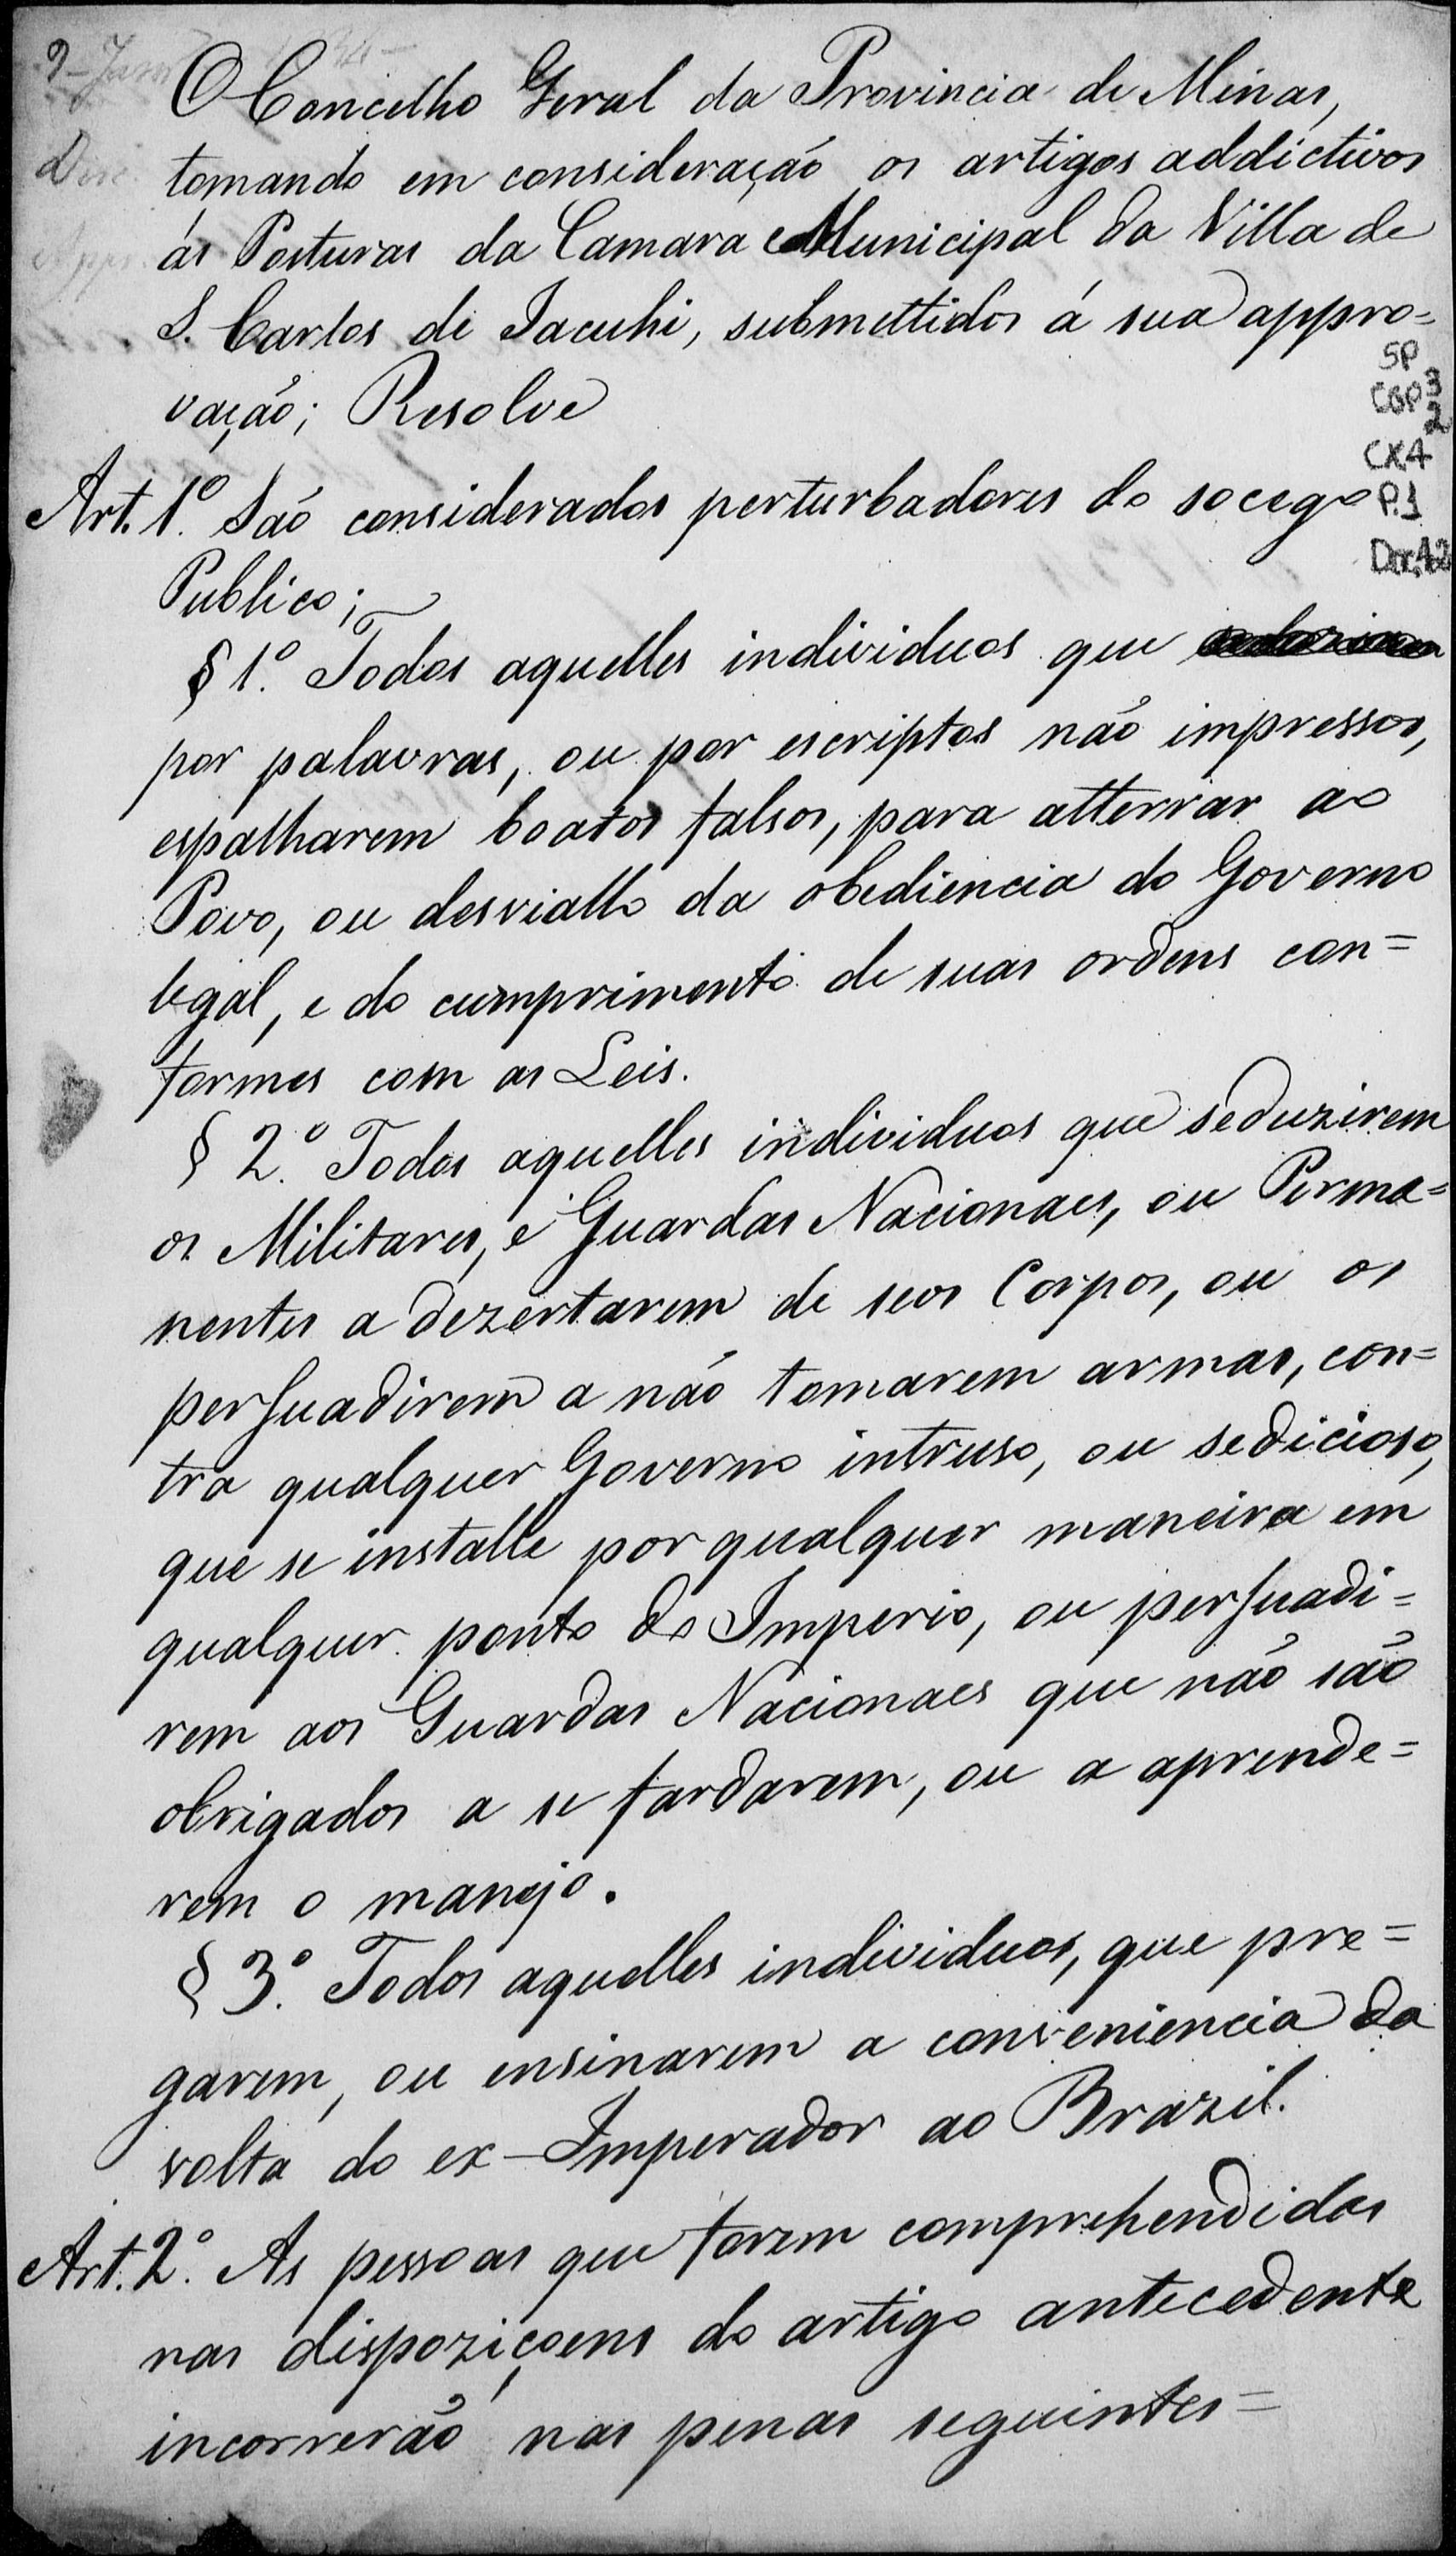 O Concelho Geral da Provincia de Minas,
tomando em consideração os artigos addictivos
ás Posturas da Camara Municipal da Villa de
S. Carlos de Jacuhi, submettidos á sua appro=
vação; Resolve
SP
CGP 3
2
CX4
P.1
Doc.42
Art. 1º. São considerados perturbadores do socego
Publico;
§ 1º. Todos aquelles individuos que
por palavras, ou por escriptos não impressos,
espalharem boatos falsos, para atterrar ao
Povo, ou desviallo da obediencia do Governo
legal, e do cumprimento de suas ordens con=
formes com as Leis.
§ 2º. Todos aquelles individuos que seduzirem
os Militares, e Guardas Nacionaes, ou Perma=
nentes a dezertarem de seos Corpos, ou os
persuadirem a não tomarem armas, con=
tra qualquer Governo intruso, ou sedicioso,
que se installe por qualquer maneira em
qualquer ponto do Imperio, ou persuadi=
rem aos Guardas Nacionaes que não são
obrigados a se fardarem, ou a aprende=
rem o manejo.
§ 3º. Todos aquelles individuos, que pre=
garem, ou ensinarem a conveniencia da
volta do ex-Imperador ao Brazil.
Art. 2º. As pessoas que forem comprehendidas
nas dispoziçoens do artigo antecedente
incorrerão nas penas seguintes=